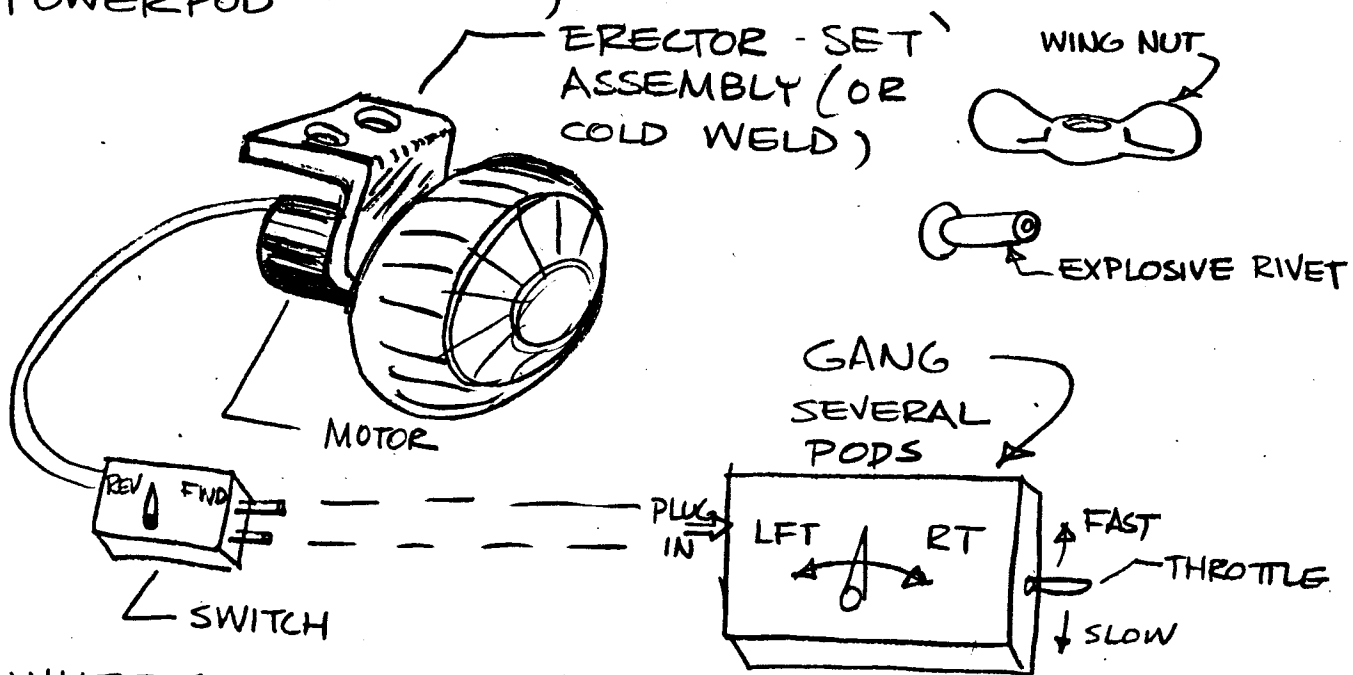 POWERPOD
ERECTOR-SET
ASSEMBLY (OR
COLD WELD)
WING NUT
EXPLOSIVE RIVET
MOTOR
GANG
SEVERAL
PODS
REV FWD
PLUG
IN
LFT RT
FAST
THROTTLE
SLOW
SWITCH